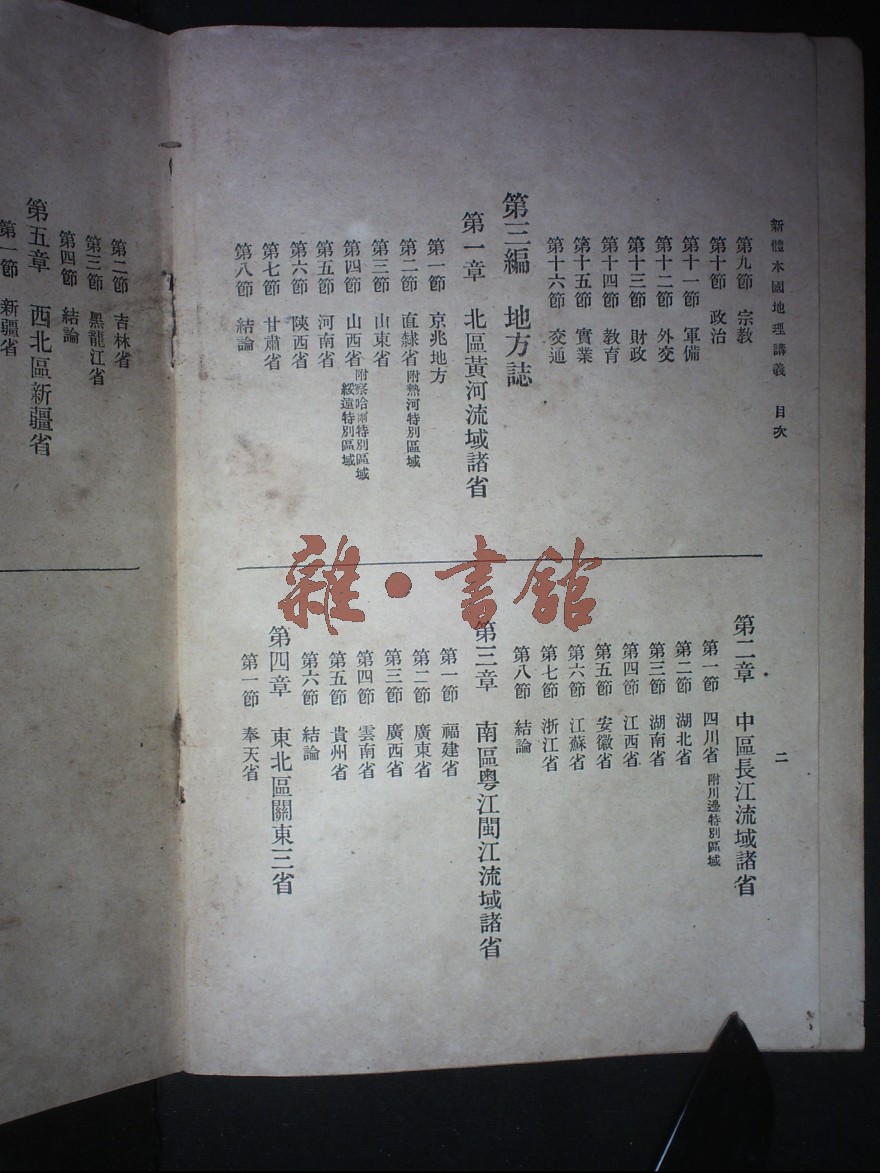 新體本國地理講義 目次
二
第九節 宗教
第十節 政治
第十一節 軍備
第十二節 外交
第十三節 財政
第十四節 教育
第十五節 實業
第十六節 交通
第三編 地方誌
第一章 北區黃河流域諸省
第一節 京兆地方
第二節 直隸省附熱河特別區域
第三節 山東省
第四節 山西省附察哈爾特別區域綏遠特別區域
第五節 河南省
第六節 陝西省
第七節 甘肅省
第八節 結論
第二章 中區長江流域諸省
第一節 四川省附川邊特別區域
第二節 湖北省
第三節 湖南省
第四節 江西省
第五節 安徽省
第六節 江蘇省
第七節 浙江省
第八節 結論
第三章 南區粵江閩江流域諸省
第一節 福建省
第二節 廣東省
第三節 廣西省
第四節 雲南省
第五節 貴州省
第六節 結論
第四章 東北區關東三省
第一節 奉天省
第二節 吉林省
第三節 黑龍江省
第四節 結論
第五章 西北區新疆省
第一節 新疆省
雜·書館